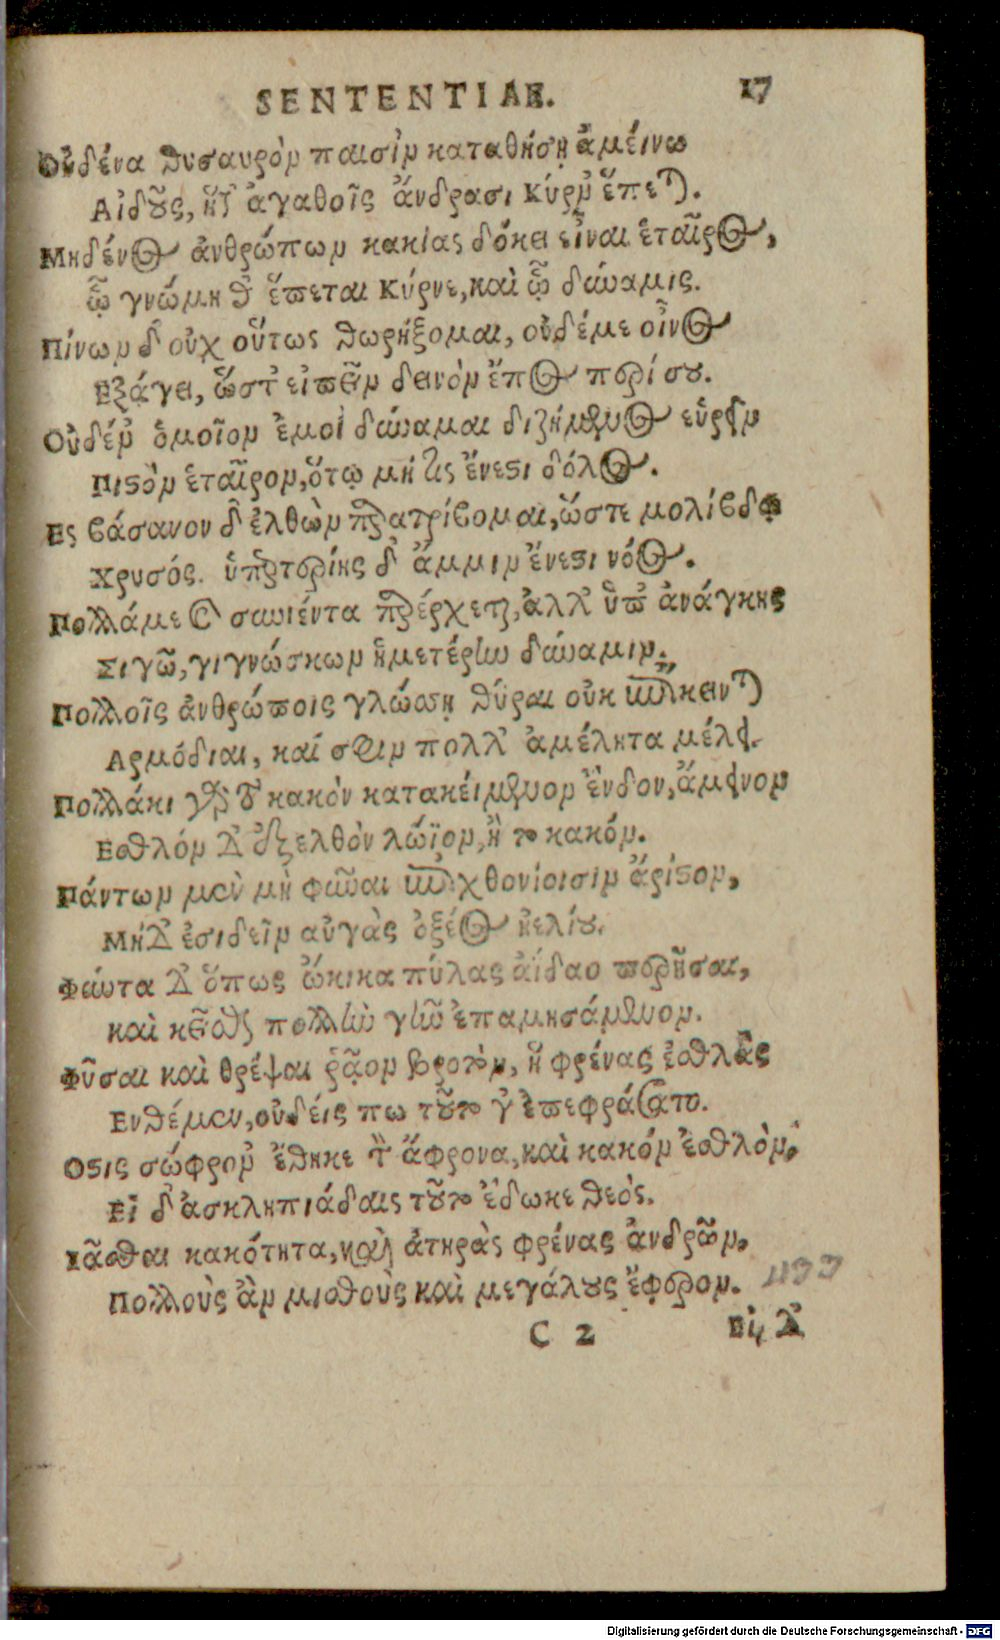 SENTENTIAE. 17
Οὐδένα θυσαυρὸν παισὶν καταθήσῃ ἀμείνω
Αἰδοῦς, ἥτ᾽ ἀγαθοῖς ἄνδρασι Κύρν᾽ ἕπεται.
Μηδένος ἀνθρώπων κακίας δόκει εἶναι ἑταῖρος,
ᾧ γνώμη θ᾽ ἕπεται Κύρνε, καὶ ᾧ δύναμις.
Πίνων δ᾽ οὐχ οὕτως θωρήξομαι, οὐδέ με οἶνος
Εξάγει, ὥστ᾽ εἰπεῖν δεινὸν ἔπος περί σου.
Οὐδέν᾽ ὁμοῖον ἐμοὶ δύναμαι διζήμενος εὑρεῖν
Πιστὸν ἑταῖρον, ὅτῳ μή τις ἔνεστι δόλος.
Ες βάσανον δ᾽ ἐλθὼν παρατρίβομαι, ὥστε μολίβδῳ
Χρυσός. ὑπερτερίης δ᾽ ἄμμιν ἔνεστι νόος.
Πολλά με καὶ συνιέντα παρέρχεται, ἀλλ᾽ ὑπ᾽ ἀνάγκης
Σιγῶ, γιγνώσκων ἡμετέρην δύναμιν.
Πολλοῖς ἀνθρώποις γλώσσῃ θύραι οὐκ ἐπίκεινται
Αρμόδιαι, καί σφιν πολλ᾽ ἀμέλητα μέλει.
Πολλάκι γὰρ τὸ κακὸν κατακείμενον ἔνδον, ἄμεινον
Εσθλόν δ᾽ ἐξελθὸν λώϊον, ἢ το κακόν.
Πάντων μεν μὴ φῦναι ἐπιχθονίοισιν ἄριστον,
Μηδ᾽ ἐσιδεῖν αὐγὰς ὀξέος ἠελίου.
Φύντα δ᾽ ὅπως ὤκικα πύλας ἀίδαο περῆσαι,
καὶ κεῖσθαι πολλὴν γῆν ἐπαμησάμενον.
Φῦσαι καὶ θρέψαι ῥᾷον βροτὸν, ἢ φρένας ἐσθλὰς
Ενθέμεν, οὐδείς πω τοῦτο γ᾽ ἐπεφράσατο.
Οστις σώφρον᾽ ἔθηκε τὸν ἄφρονα, καὶ κακόν ἐσθλὸν.
Εἰ δ᾽ ἀσκληπιάδαις τοῦτο ἔδωκε θεὸς.
Ιᾶσθαι κακότητα, καὶ ἀτηρὰς φρένας ἀνδρῶν,
Πολλοὺς ἂν μισθοὺς καὶ μεγάλους ἔφερον. 433
C 2 Εἰ δ᾽
Digitalisierung gefördert durch die Deutsche Forschungsgemeinschaft - DFG